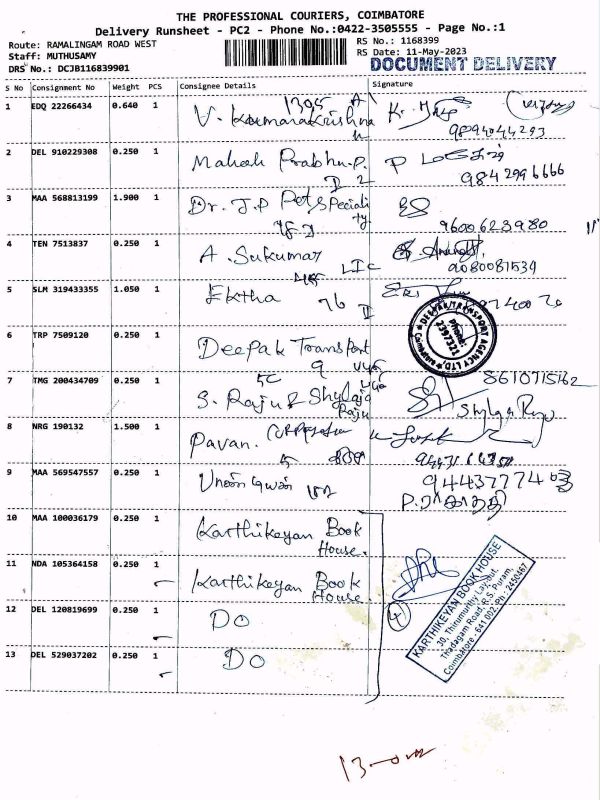 THE PROFESSIONAL COURIERS, COIMBATORE
Delivery Runsheet - PC2 - Phone No.:0422-3505555 - Page No.:1
Route: RAMALINGAM ROAD WEST
RS No.: 1168399
Staff: MUTHUSAMY
RS Date: 11-May-2023
DRS No.: DCJB116839901
DOCUMENT DELIVERY
S No Consignment No Weight PCS Consignee Details Signature
1 EDQ 22266434 0.640 1 V. Kumarakrishna
1395 A
9894044293
2 DEL 910229308 0.250 1 Mahesh Prabhu.P.
9842996666
3 MAA 568813199 1.900 1 Dr. J.P Pet Speciality
9600623980
4 TEN 7513837 0.250 1 A. Sukumar
LIC
5 SLM 319433355 1.050 1 Ektha
76 II
6 TRP 7509120 0.250 1 Deepak Transport
9
DEEPAK TRANSPORT AGENCY LTD.
Phone: 2397321
7 TMG 200434709 0.250 1 S. Raju & Shylaja Raju
5C
8610715162
8 NRG 190132 1.500 1 Pavan.
9 MAA 569547557 0.250 1
10 MAA 100036179 0.250 1 Karthikeyan Book House.
11 NDA 105364158 0.250 1 Karthikeyan Book House.
12 DEL 120819699 0.250 1 DO
13 DEL 529037202 0.250 1 DO
4
KARTHIKEYAN BOOK HOUSE
30, Thirumurthy Layout,
Thadagam Road, R.S. Puram,
Coimbatore - 641 002. PH : 2450467